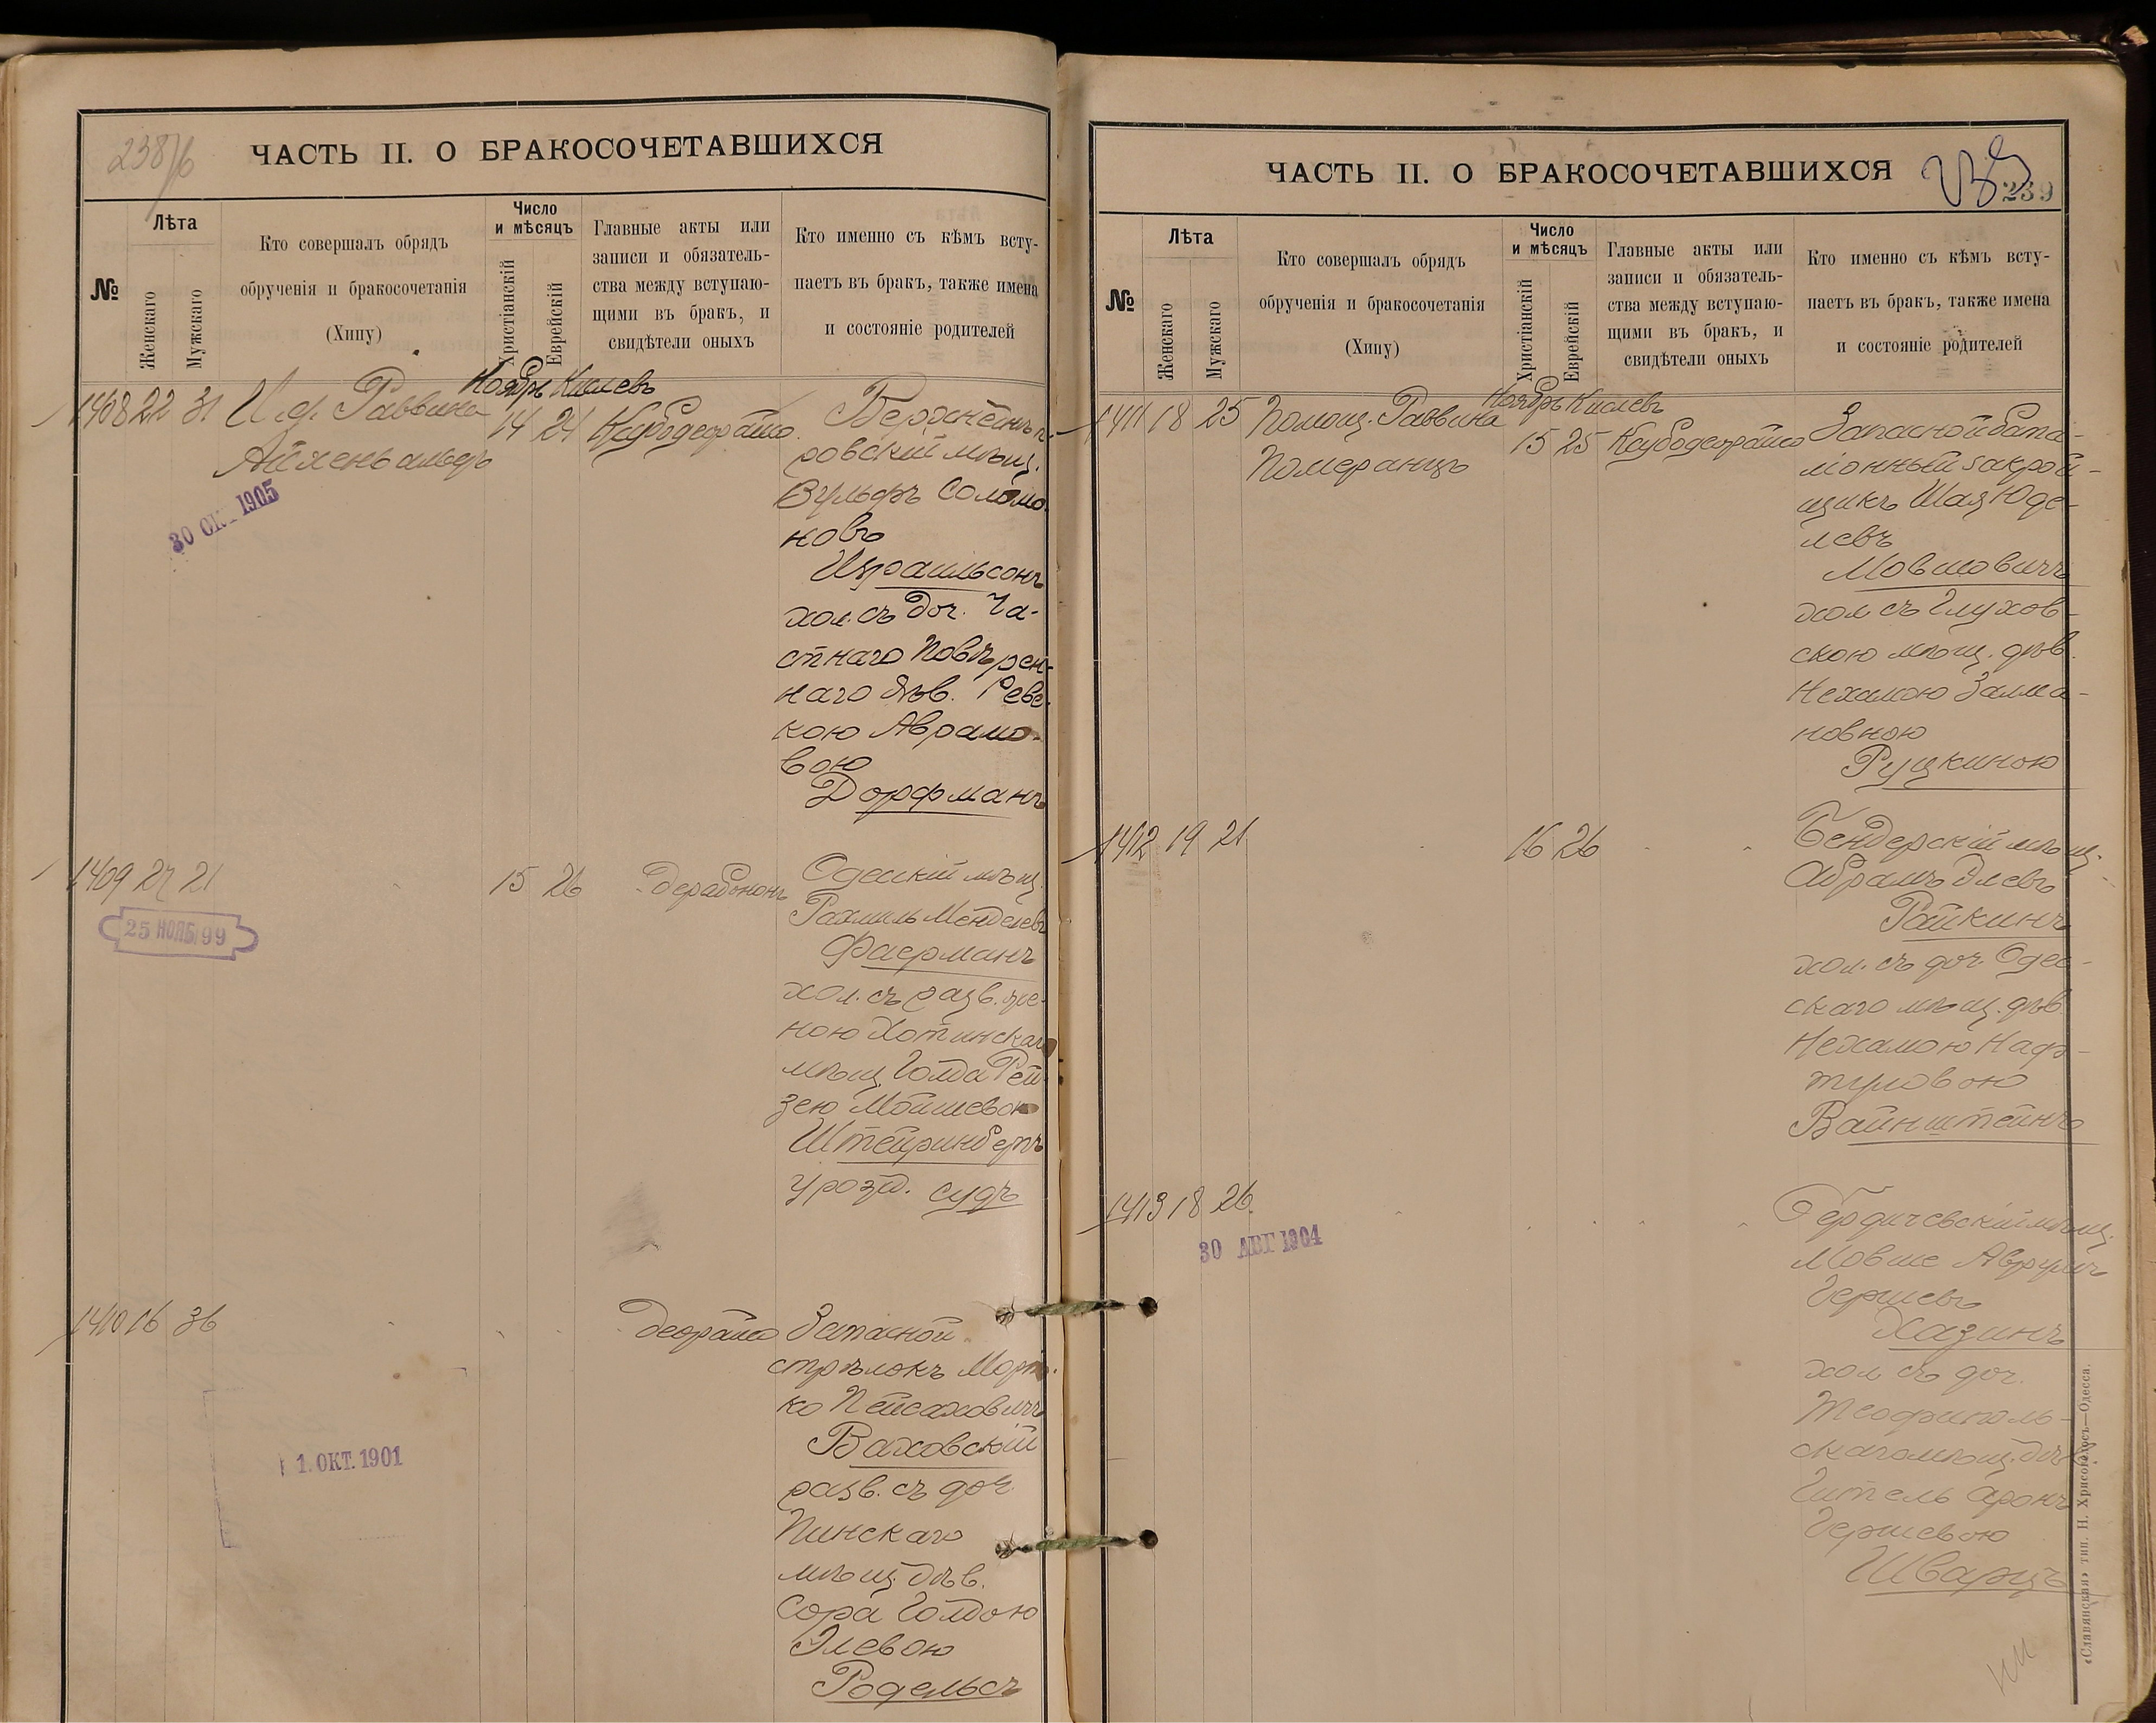 238/б
ЧАСТЬ II. О БРАКОСОЧЕТАВШИХСЯ
№
Лѣта
Женскаго
Мужскаго
Кто совершалъ обрядъ
обрученія и бракосочетанія
(Хипу)
Число
и мѣсяцъ
Христіанскій
Еврейскій
Главные акты или
записи и обязатель-
ства между вступаю-
щими въ бракъ, и
свидѣтели оныхъ
Кто именно съ кѣмъ всту-
паетъ въ бракъ, также имена
и состояніе родителей
Ноябрь Кислевъ
1408 22 31 И. д. Раввина
Айхенвальдъ
14 24
30 ОК 1905
ровскій мѣщ.
Вульфъ Соломо-
новъ
Израильсонъ
хол. съ доч. Ча-
стнаго Повѣрен-
наго дѣв. Реве-
кою Аврамо-
вою
Дорфманъ
1409 27 21
15 26
25 НОЯБ 99
Одесскій мѣщ.
Рахмиль Менделевъ
Фаерманъ
хол. съ разв. же-
ною Хотинскаго
мѣщ. Голда Рей-
зею Мошевою
урозд. Судъ
1410 16 36
деорайсо
1. ОКТ. 1901
Запасной
стрѣлокъ Морт-
ко Пейсаховичъ
Ваховскій
разв. съ доч.
Пинскаго
мѣщ. дѣв.
Сора Голдою
Элевою
Родельсъ
ЧАСТЬ II. О БРАКОСОЧЕТАВШИХСЯ
239
№
Лѣта
Женскаго
Мужскаго
Кто совершалъ обрядъ
обрученія и бракосочетанія
(Хипу)
Число
и мѣсяцъ
Христіанскій
Еврейскій
Главные акты или
записи и обязатель-
ства между вступаю-
щими въ бракъ, и
свидѣтели оныхъ
Кто именно съ кѣмъ всту-
паетъ въ бракъ, также имена
и состояніе родителей
Ноябрь Кислевъ
1411 18 25 Помощ. Раввина
Померанцъ
15 25
Запасной бата-
ліонный закрой-
щикъ Шая Юде-
левъ
Мовшовичъ
хол. съ Глухов-
скою мѣщ. дѣв.
Нехамою Залма-
новною
Руцкиною
1412 19 21
16 26
Бендерскій мѣщ.
Абрамъ Элевъ
Райкинъ
хол. съ доч. Одес-
скаго мѣщ. дѣв.
Нехамою Наф-
туловою
Вайнштейнъ
1413 18 26
30 АВГ 1904
Бердичевскій мѣщ.
Мовше Аврумъ
Гершевъ
Хазинъ
хол. съ доч.
Теофиполь-
скаго мѣщ. дѣв.
Гитель Аронъ
Гершевою
Шварцъ
«Славянская» тип. Н. Хрисогелосъ—Одесса.